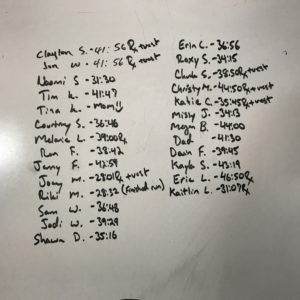 Clayton S. - 41:56 Rx + vest
Jon W. - 41:56 Rx + vest
Naomi S - 31:30
Tim K. - 41:47
Tina K. - mom
Courtney S. - 36:46
Melanie L. - 39:00 Rx
Ron F. - 38:42
Jenny F. - 42:59
Joey M. - 28:01 Rx + vest
Riki M. - 28:32 (finished run)
Sam W. - 36:48
Jodi W. - 39:29
Shawn D. - 35:16
Erin C. - 36:56
Roxy S. - 34:15
Chuck S. - 38:50 Rx + vest
Christy M. - 44:50 Rx + vest
Katie C. - 35:45 Rx + vest
Missy J. - 34:13
Megan B. - 44:00
Dad - 41:30
Dain F. - 39:45
Kayla S. - 43:19
Eric L. - 46:50 Rx
Kaitlin L. - 31:07 Rx